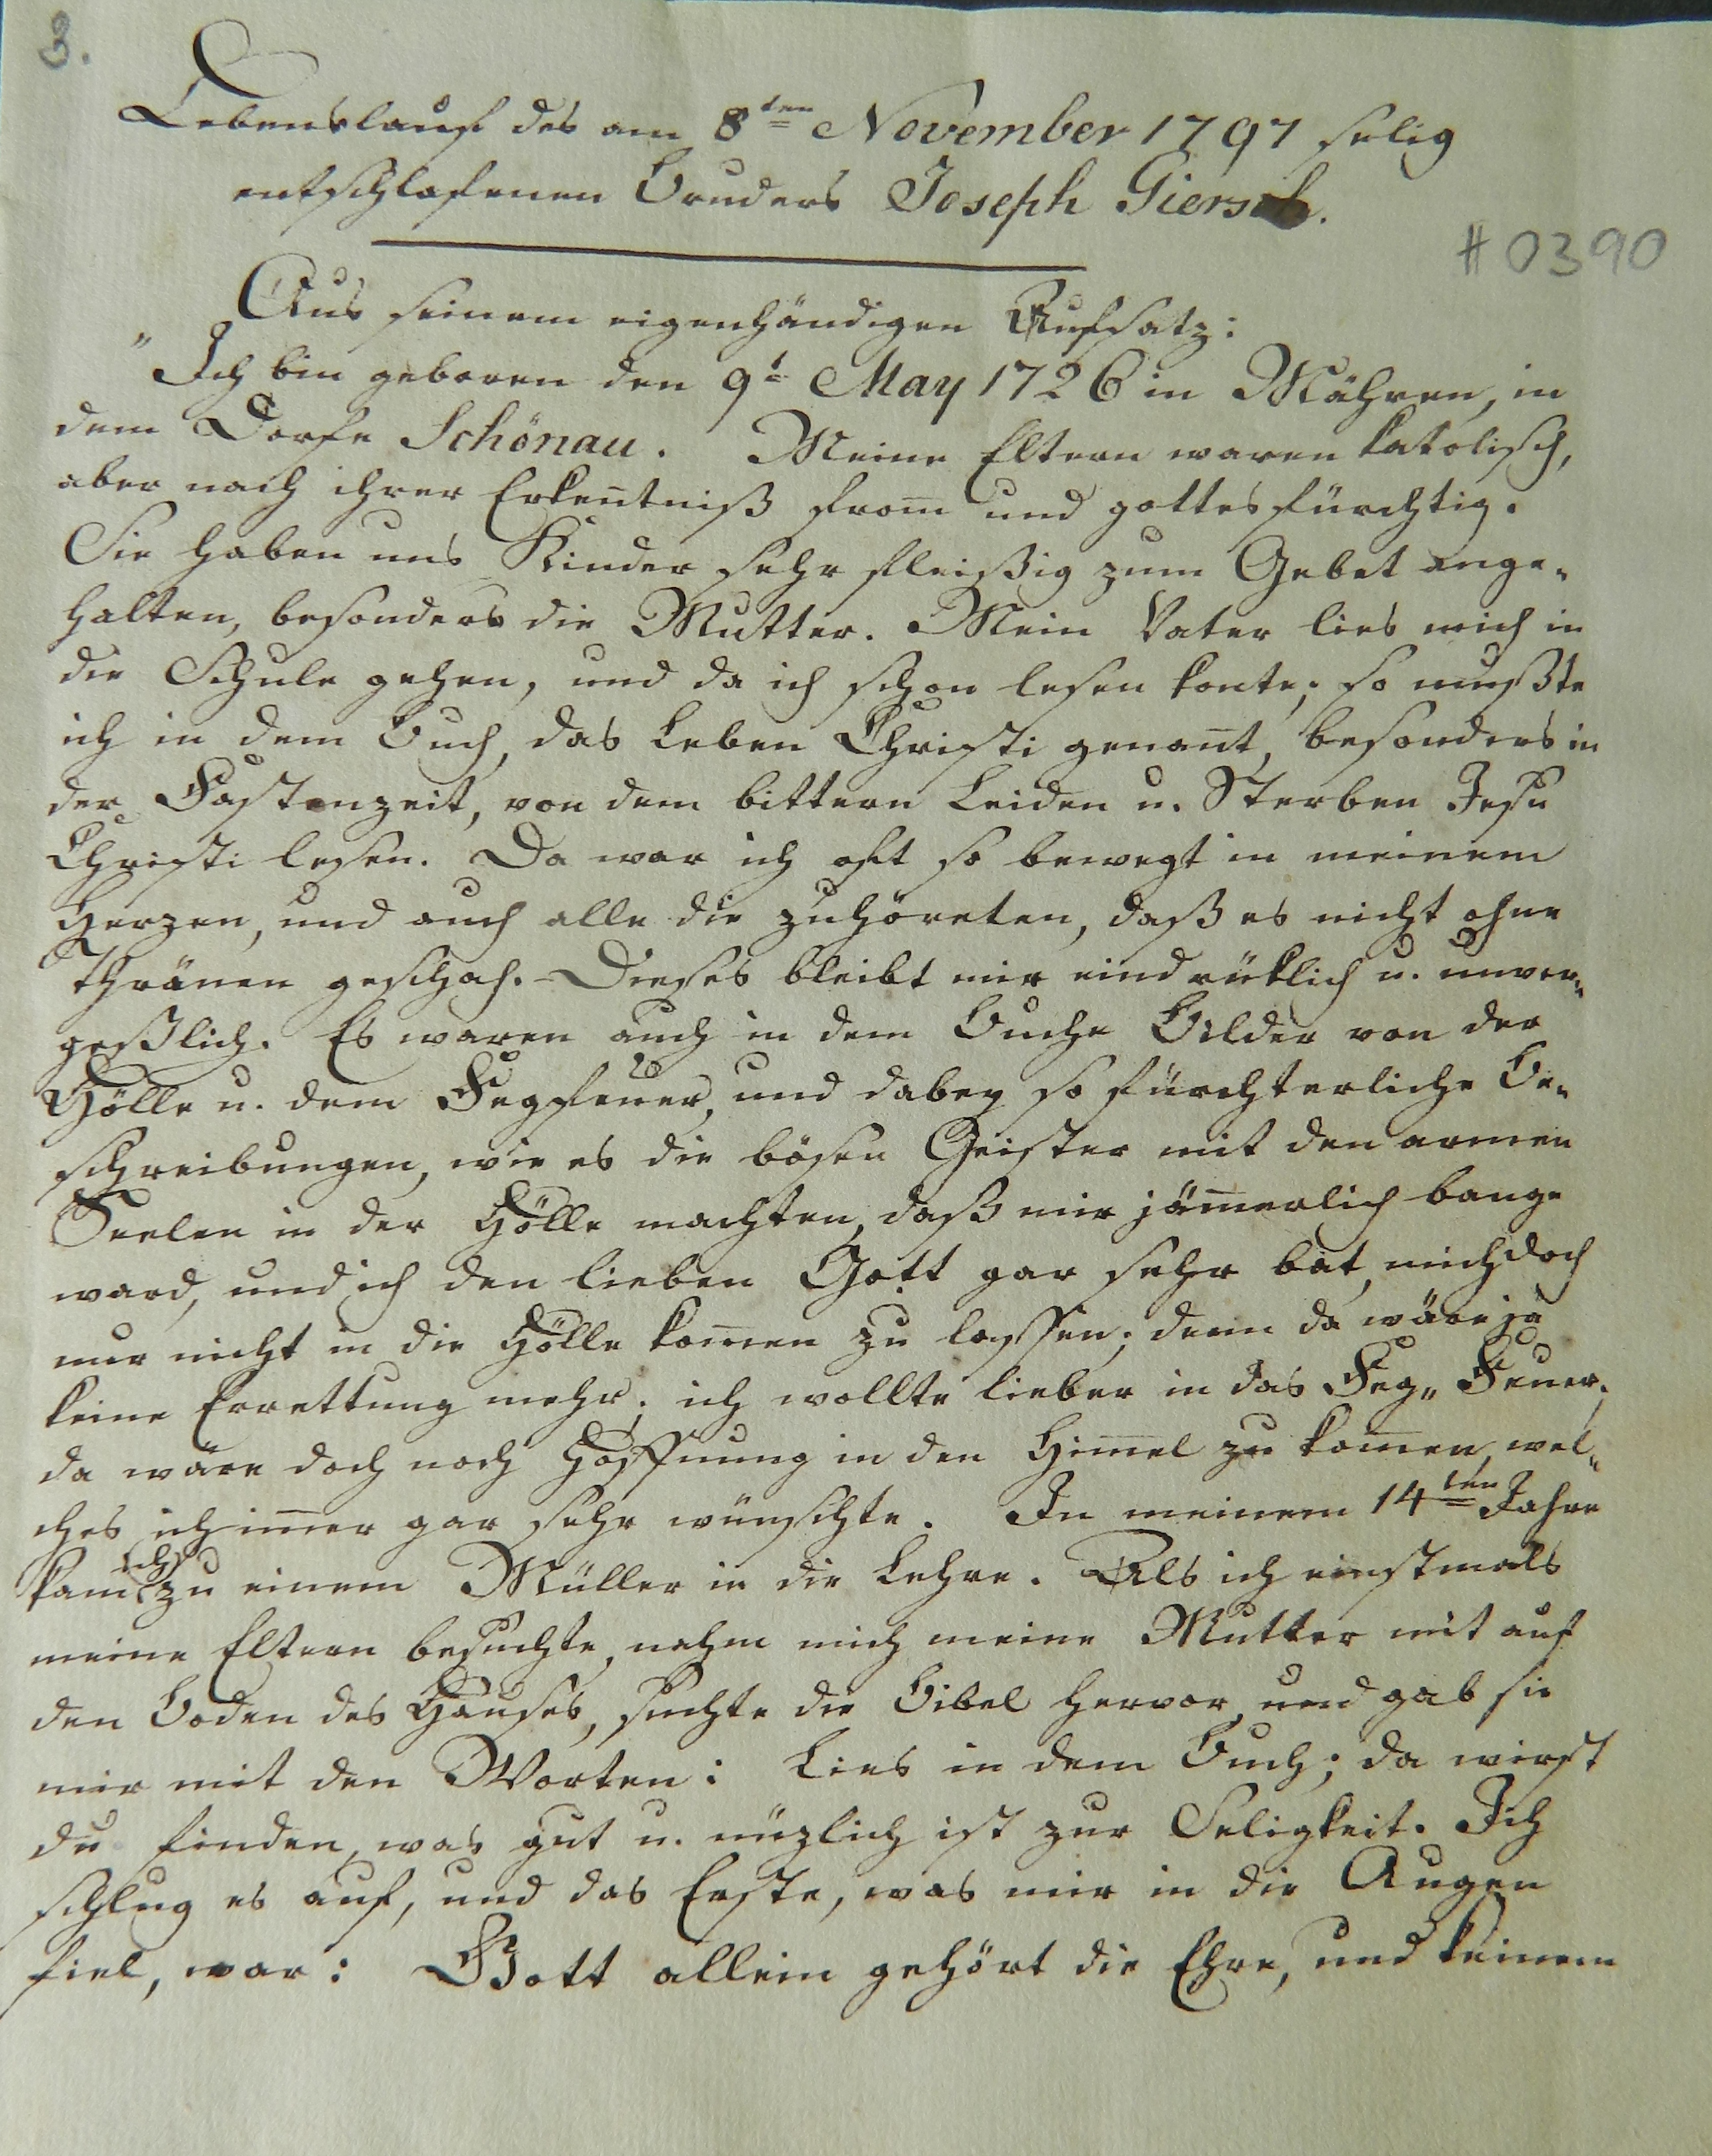 3.
Lebenslauf des am 8ten November 1797 selig
entschlafenen Bruders Joseph Giersch.
#0390
Aus seinem eigenhändigen Aufsatz:
"Ich bin geboren den 9t May 1726 in Mähren, in
dem Dorfe Schönau. Meine Eltern waren katolisch,
aber nach ihrer Erken̄tniß from̄ und gottesfürchtig.
Sie haben uns Kinder sehr fleißig zum Gebet ange-
halten, besonders die Mutter. Mein Vater lies mich in
die Schule gehen, und da ich schon lesen konte; so mußte
ich in dem Buch, das Leben Christi genan̄t, besonders in
der Fastenzeit, von dem bittern Leiden u. Sterben Jesu
Christi lesen. Da war ich oft so bewegt in meinem
Herzen, und auch alle die zuhöreten, daß es nicht ohne
Thränen geschah. - Dieses bleibt mir eindrüklich u. unver-
geßlich. Es waren auch in dem Buche Bilder von der
Hölle u. dem Fegfeuer, und dabey so fürchterliche Be-
schreibungen, wie es die bösen Geister mit den armen
Seelen in der Hölle machten, daß mir jäm̄erlich bange
ward, und ich den lieben Gott gar sehr bat, mich doch
nur nicht in die Hölle kom̄en zu lassen; denn da wäre ja
keine Errettung mehr; ich wollte lieber in das Feg-Feuer;
da wäre doch noch Hoffnung in den Him̄el zu kom̄en, wel-
ches ich im̄er gar sehr wünschte. In meinem 14ten Jahre
kam ich zu einem Müller in die Lehre. Als ich einstmals
meine Eltern besuchte, nahm mich meine Mutter mit auf
den Boden des Hauses, suchte die Bibel hervor, und gab sie
mir mit den Worten: Lies in dem Buch; da wirst
du finden, was gut u. nüzlich ist zur Seligkeit. Ich
schlug es auf, und das Erste, was mir in die Augen
fiel, war: Gott allein gehört die Ehre, und keinem